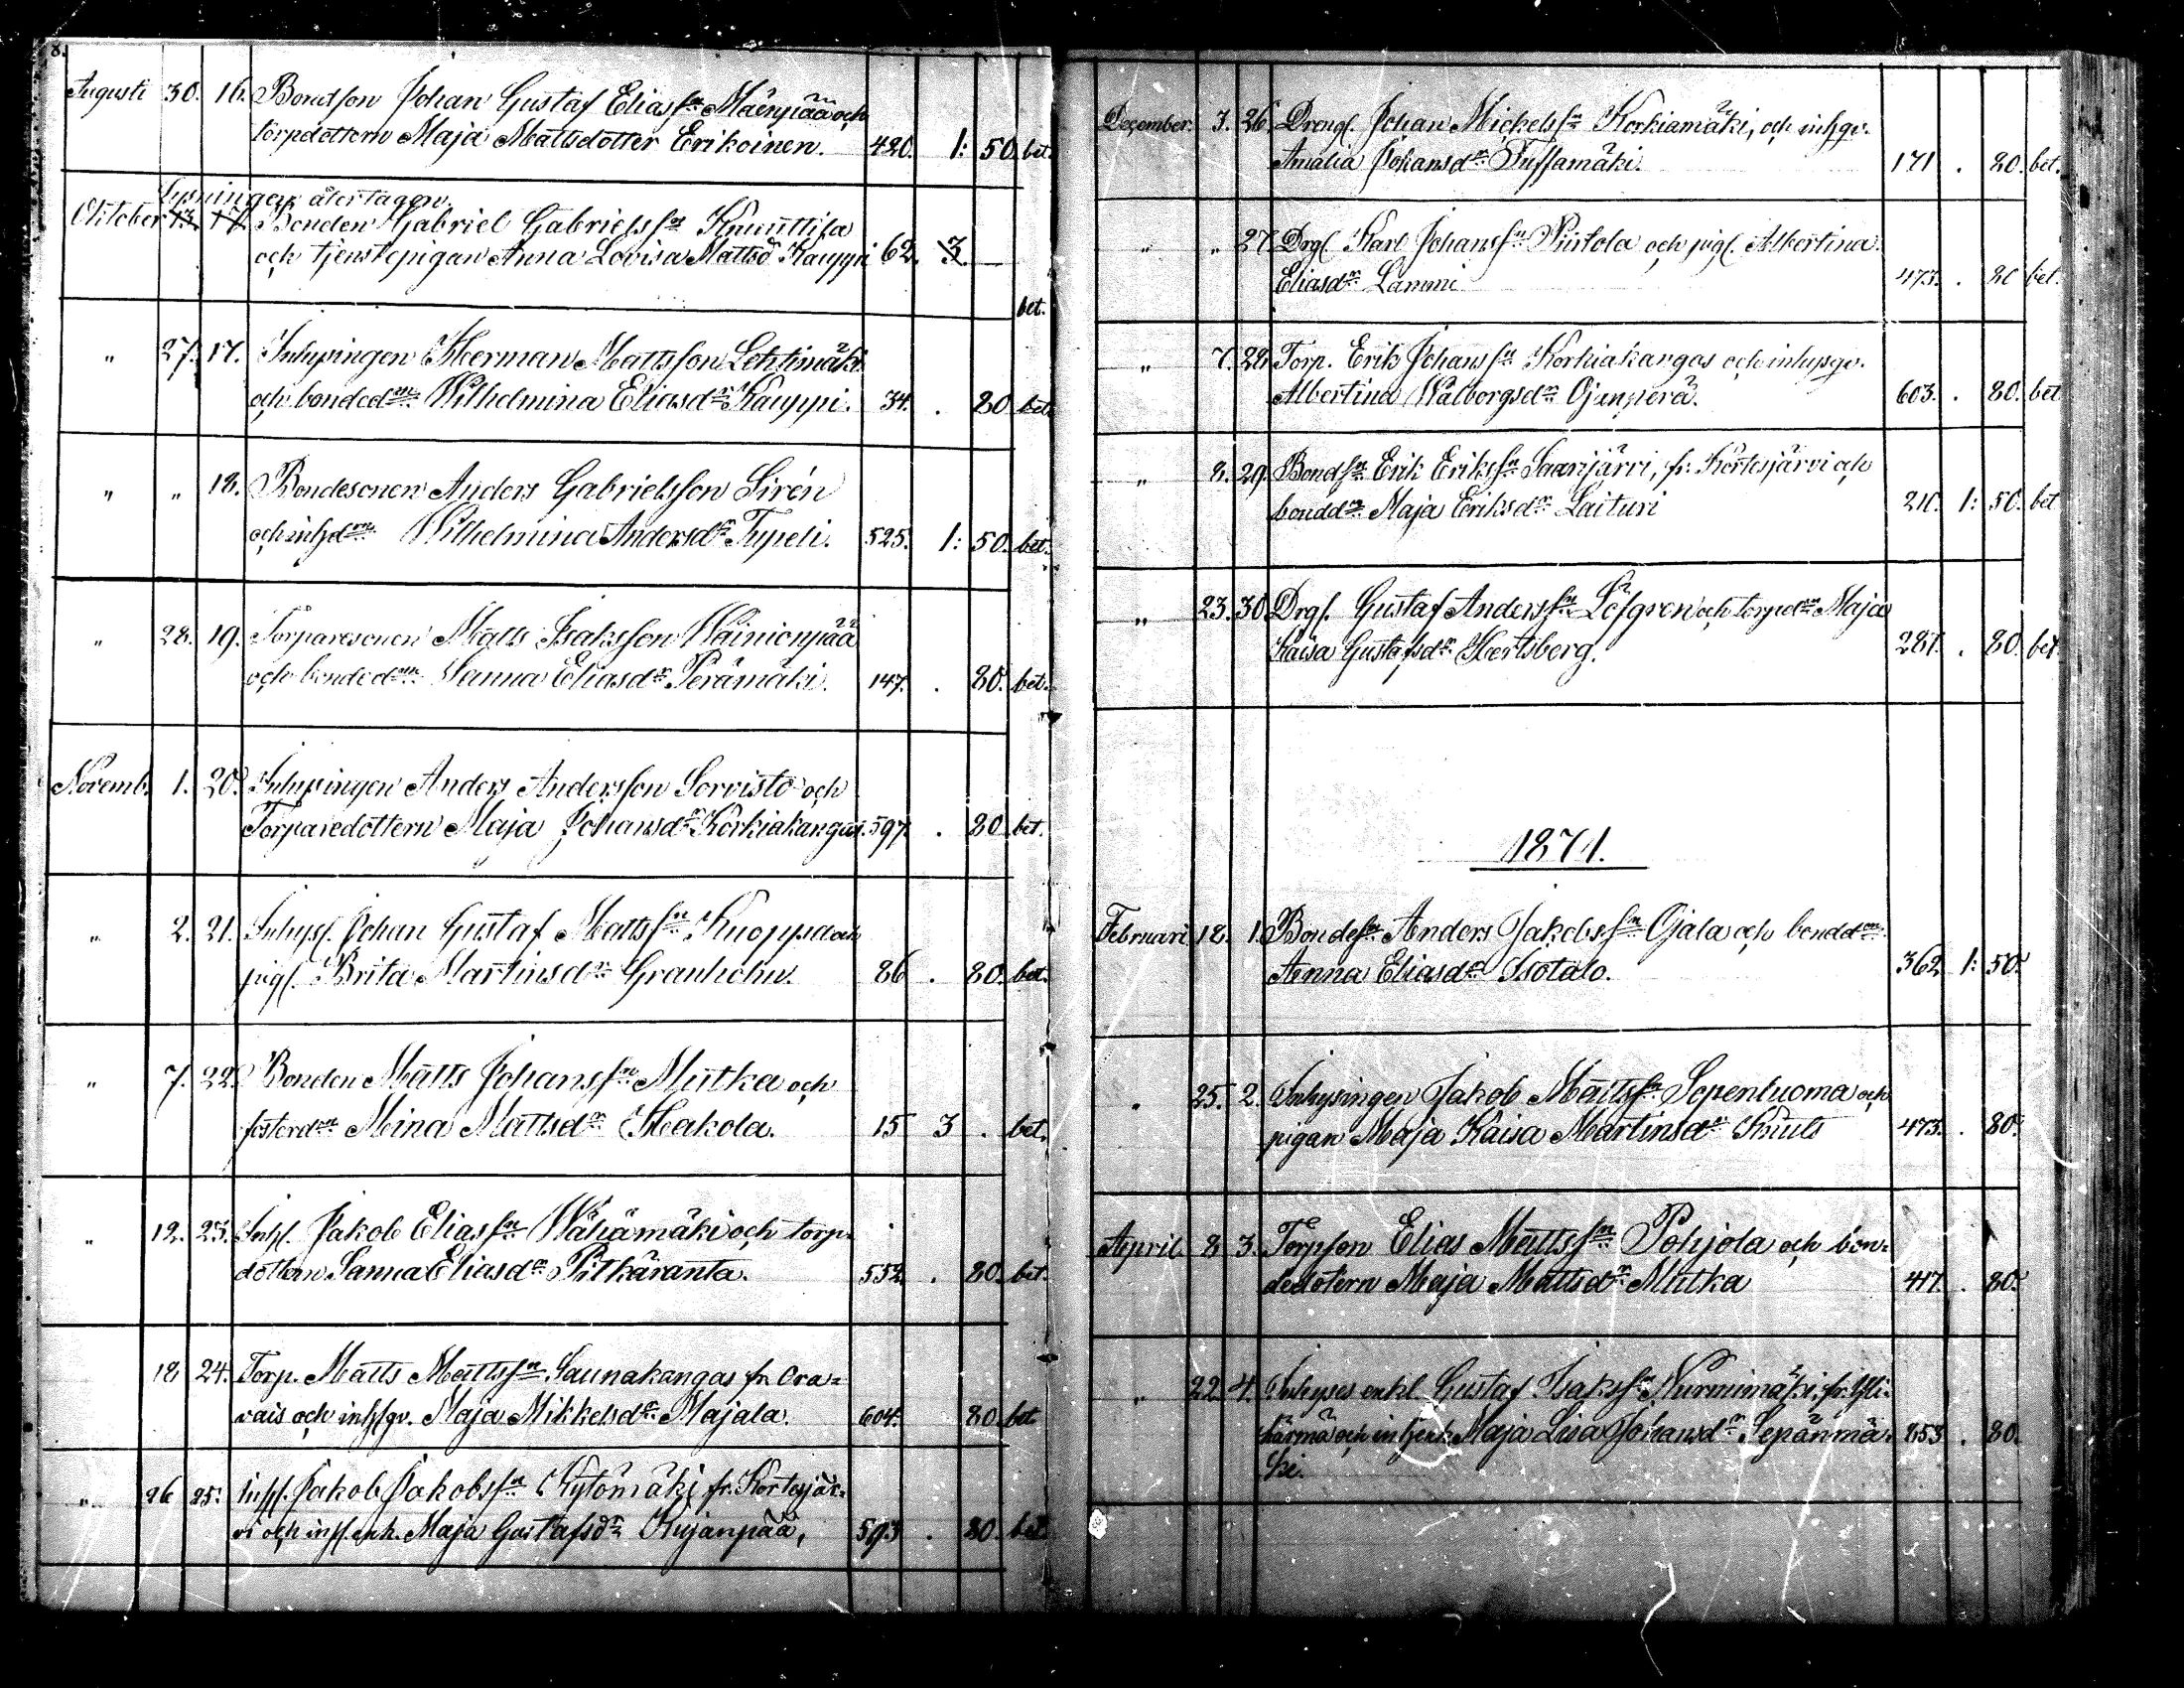 8.
Augusti 30. 16. Bondson Johan Gustaf Eliassn Mäenpää och
torpdottern Maja Mattsdotter Erikoinen. 420. 1: 50. bet.
Lysningen återtagen.
Oktober 13. 17. Bonden Gabriel Gabrielssn Knuuttila
och tjenstepigan Anna Lovisa Mattsd Kauppi 62. 3. —
bet.
" 27. 17. Inhysingen Herman Mattsson Lehtimäki
och bondedrn Wilhelmina Eliasdr Kauppi. 34. . 80 bet.
" " 18. Bondesonen Anders Gabrielsson Sirén
och inhdrn Wilhelmina Andersdr Typeli. 525. 1: 50. bet.
" 28. 19. Torparesonen Matts Isaksson Wäinionpää
och bondedrn Sanna Eliasdr Perämäki. 147. . 80. bet.
Novemb. 1. 20. Inhysingen Anders Andersson Sorvisto och
Torparedottern Maja Johansdr Korkiakangas. 597. . 80 bet.
" 2. 21. Inhyss. Johan Gustaf Mattssn Kuoppa och
pigs. Brita Martinsdr Granholm. 86 . 80. bet.
" 7. 22. Bonden Matts Johanssn Mutka och
fosterdrn Mina Mattsdr Hakola. 15 3 . bet.
" 12. 23. Inhs. Jakob Eliassn Wähämäki och torp-
dottern Sanna Eliasdr Pitkäranta. 552. . 80. bet.
18 24. Torp. Matts Mattssn Saunakangas fr. Ora-
vais och inhsgv. Maja Mikkelsdr Majala. 604. 80. bet
" 26 25. Inhs. Jakob Jakobssn Kytömäki fr. Kortesjär-
vi och inhs.enk. Maja Gustafsdr Kujanpää, 593 . 80. bet.
December. 3. 26. Drengs. Johan Mickelssn Korkiamäki, och inhsgv.
Amalia Johansdr Tussamäki. 171 . 80. bet.
" " 27. Drgs. Karl Johanssn Piirtola och pigs. Albertina
Eliasdr Lammi 473. . 80 bet.
" 7. 28. Torp. Erik Johanssn Korkiakangas och inhysgv.
Albertina Walborgsdr Ojanperä. 603. . 80. bet
" 8. 29. Bondsn Erik Erikssn Saarijärvi, fr. Kortesjärvi och
bonddrn Maja Eriksdr Laituri 211. 1: 50. bet
" 23. 30. Drgs. Gustaf Anderssn Löfgren och torpdrn Maja
Kaisa Gustafsdr Hertsberg. 287. . 80. bet
1871.
Februari 18. 1. Bondesn Anders Jakobssn Ojala och bonddrn
Anna Eliasdr Isotalo. 362. 1: 50.
" 25. 2. Inhysingen Jakob Mattssn Sepenluoma och
pigan Maja Kaisa Martinsdr Kuuts 473. . 80.
April. 8 3. Torpson Elias Mattssn Pohjola och bon-
dedotern Maja Mattsdr Mutka 417. . 80.
" 22. 4. Inhyses enkl. Gustaf Isakssn Nurmimäki, fr. Yli-
härmä och inhenk. Maja Lisa Johansdr Sepänmä- 253 . 80.
ki.